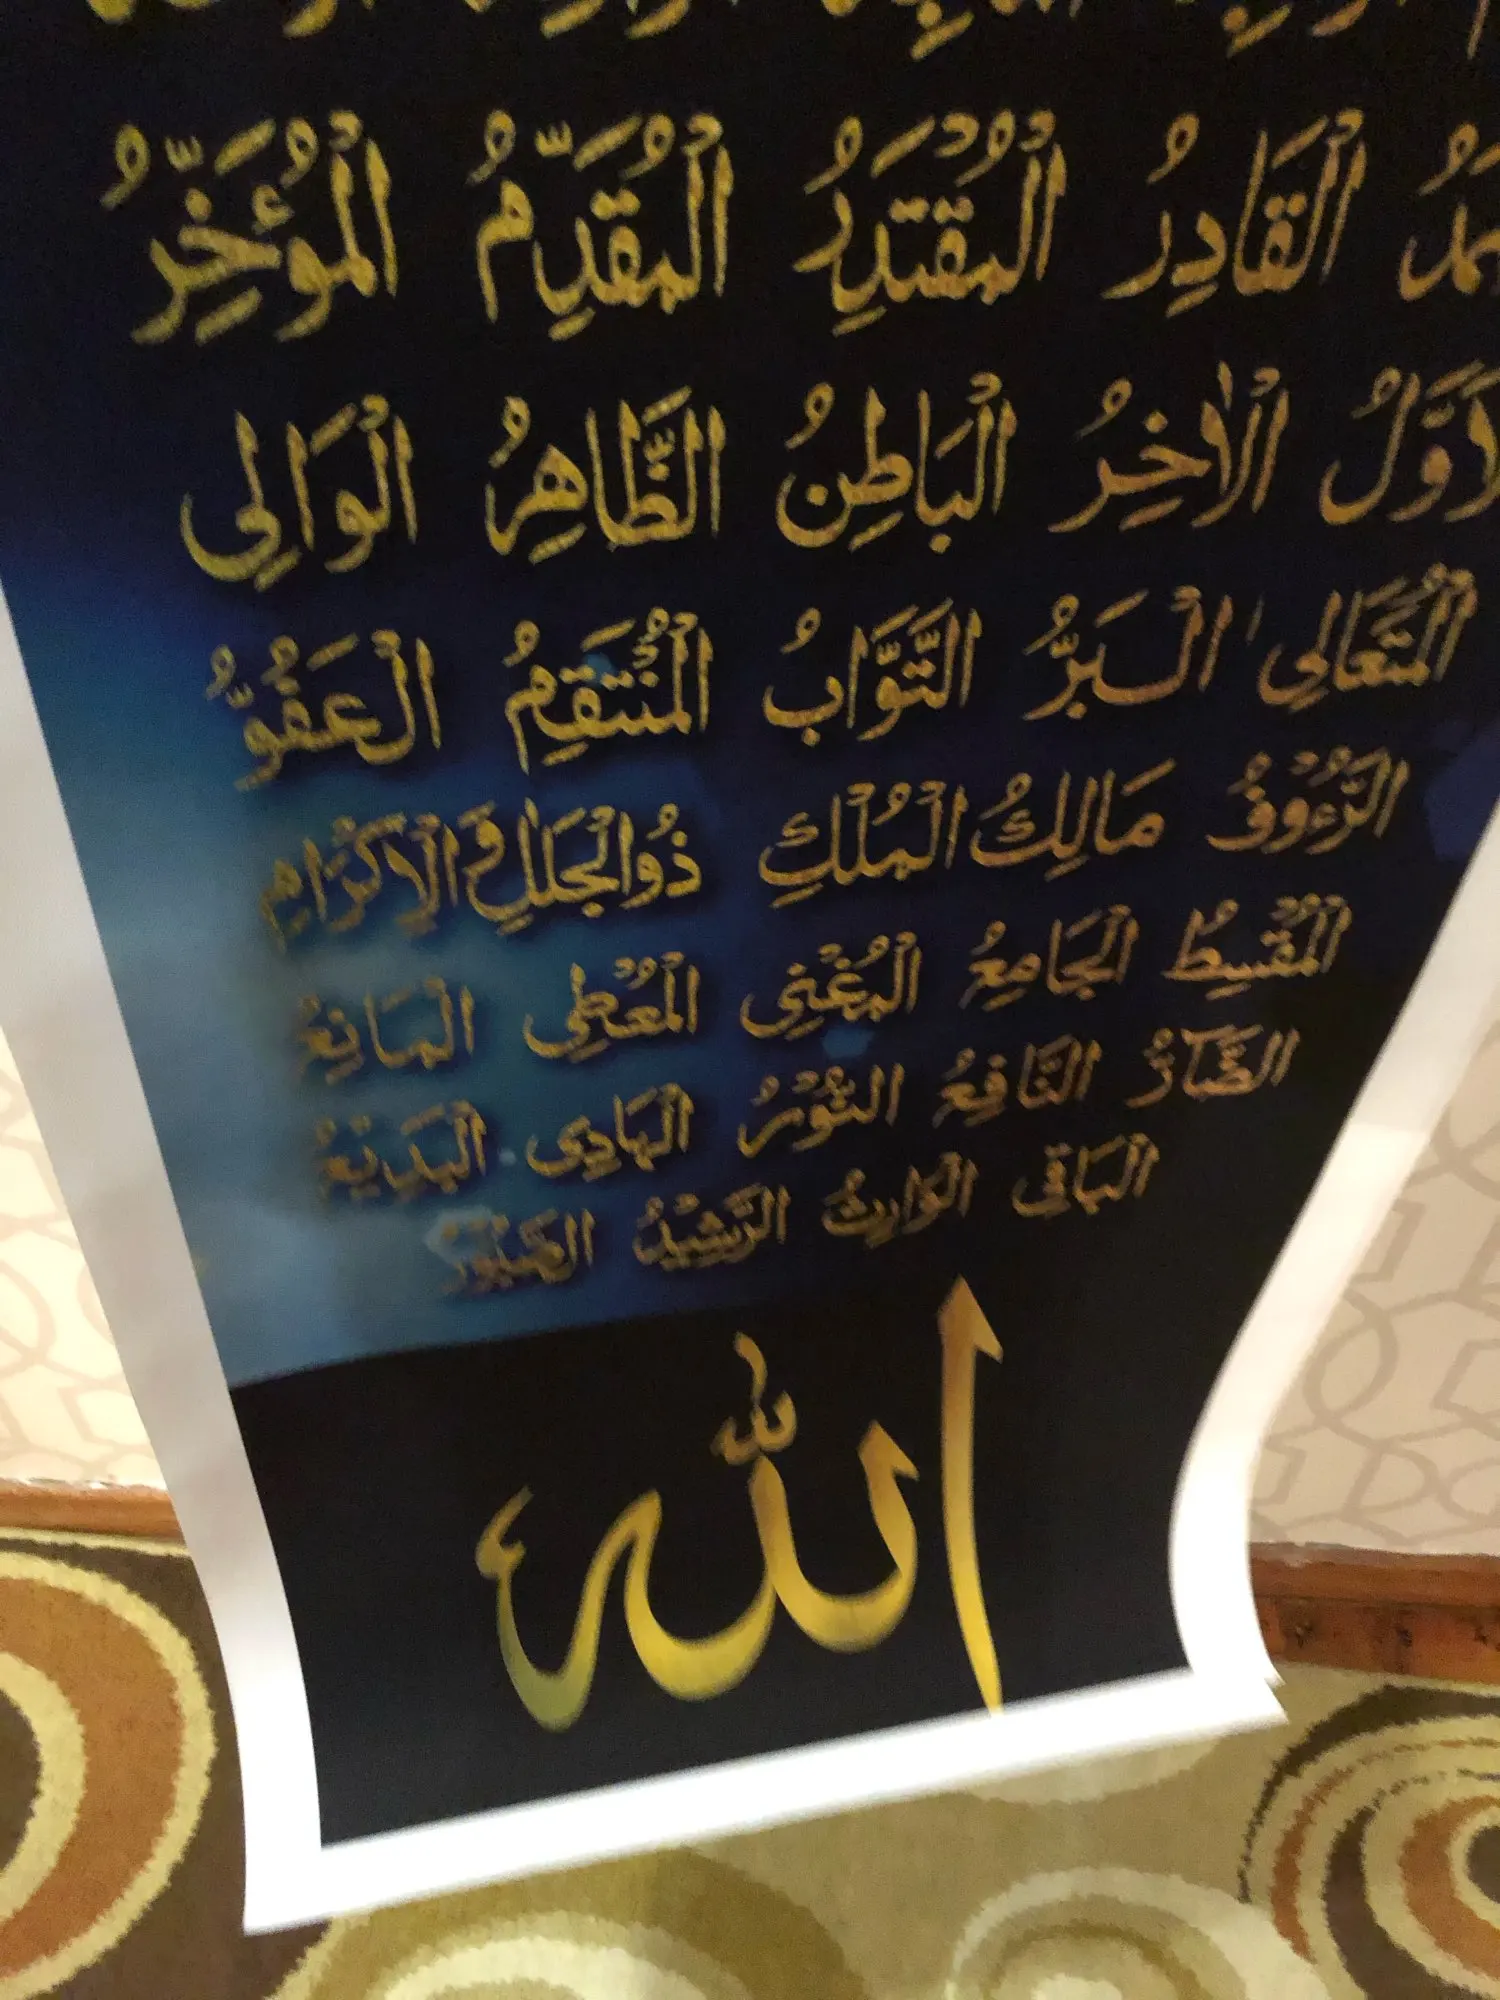 الْقَادِرُ الْمُقْتَدِرُ الْمُقَدِّمُ الْمُؤَخِّرُ
الْاٰخِرُ الْبَاطِنُ الظَّاهِرُ الْوَالِي
الْمُتَعَالِي الْبَرُّ التَّوَّابُ الْمُنْتَقِمُ الْعَفُوُّ
الرَّءُوْفُ مَالِكُ الْمُلْكِ ذُوالْجَلَلِ وَ الْاِكْرَامِ
الْمُقْسِطُ الْجَامِعُ الْمُغْنِي الْمُعْطِي الْمَانِعُ
الضَّآرُّ النَّافِعُ النُّوْرُ الْهَادِي الْبَدِيْعُ
الْبَاقِي الْوَارِثُ الرَّشِيْدُ الصَّبُوْرُ
الله